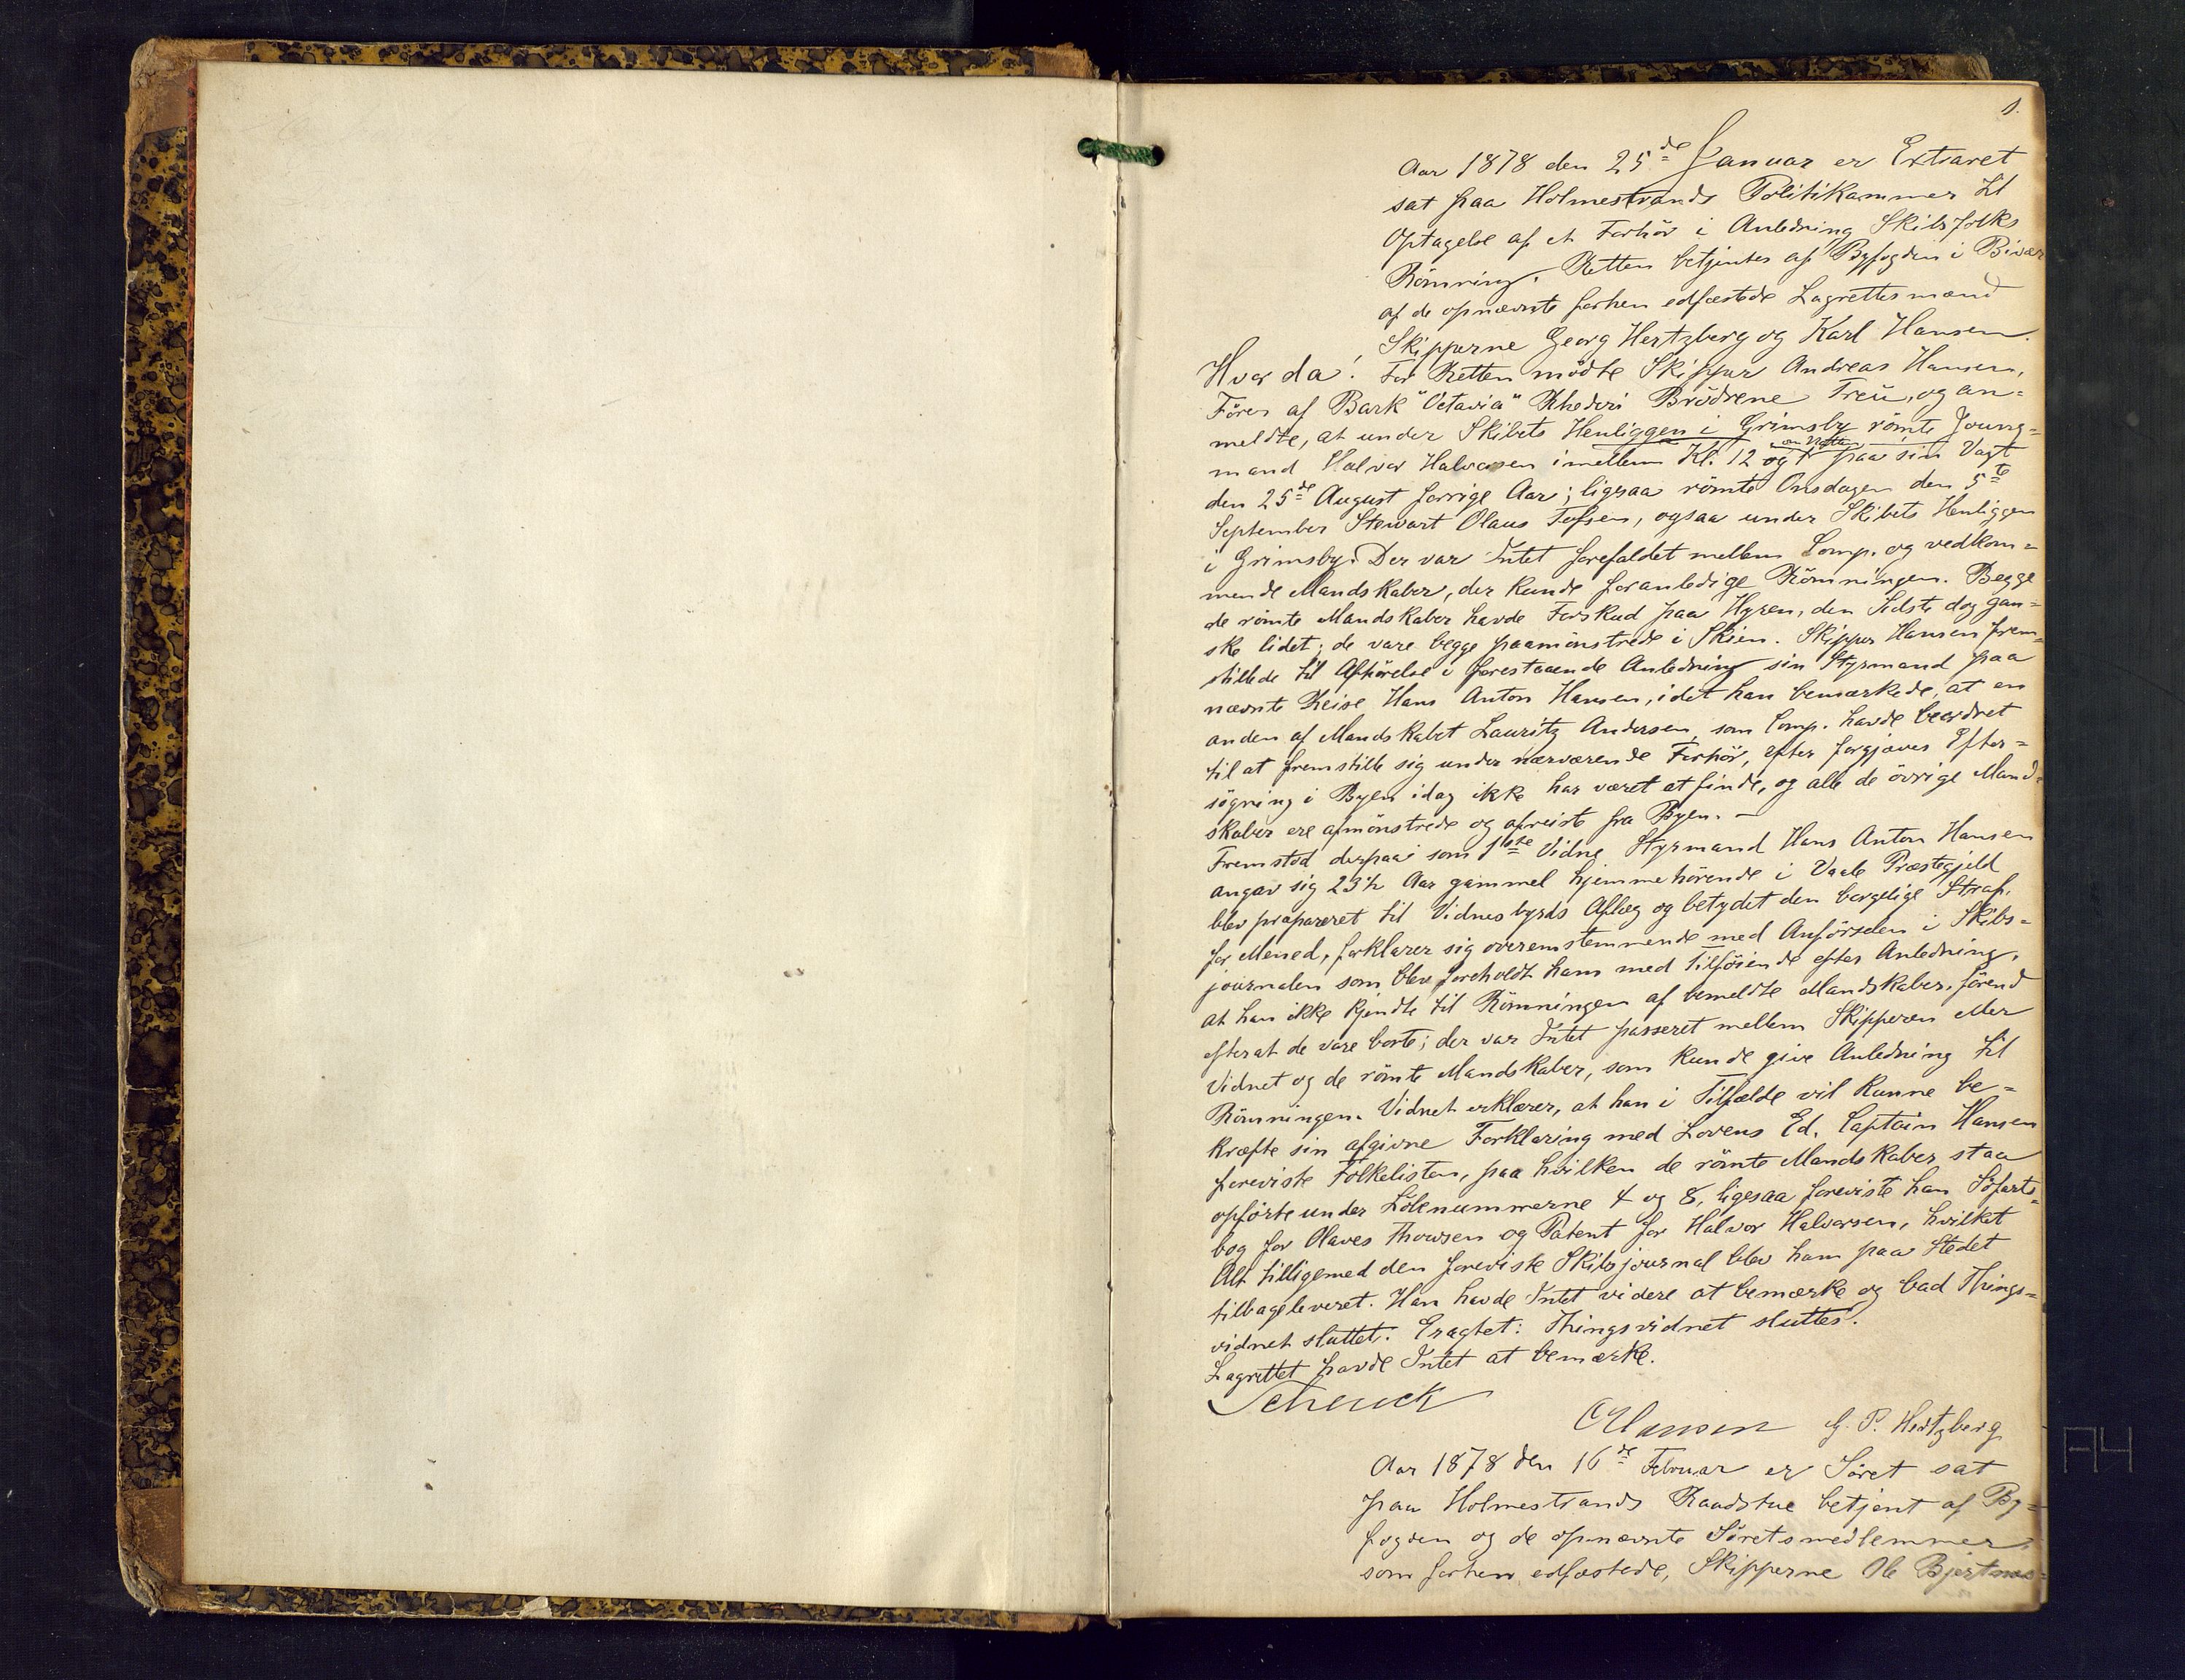 1.
Aar 1878 den 25de Januar er Extraret
sat paa Holmestrands Politikammer til
Optagelse af et Forhör i Anledning Skibsfolks
Römning. Retten betjentes af Byfogden i Bivær
af de opnævnte forhen edfæstede Lagrettesmænd
Skipperne Georg Hertzberg og Karl Hansen.
Hvor da! For Retten mödte Skipper Andreas Hansen,
Förer af Bark "Octavia" Rhederi Brödrene Freu, og an=
meldte, at under Skibets Henliggen i Grimsby römte Joung=
mand Halvor Halvorsen imellem Kl. 12 og 1 om Natten paa sin Vagt
den 25de August forrige Aar; ligesaa römte Onsdagen den 5te
September Stewart Olaus Tofsen, ogsaa under Skibets Henliggen
i Grimsby. Der var Intet forefaldet mellem Comp. og vedkom=
mende Mandskaber, der kunde foranledige Römningen. Begge
de römte Mandskaber havde Forskud paa Hyren, den Sidste dog gan=
ske lidet; de vare begge paamönstrede i Skien. Skipper Hansen frem=
stillede til Afhörelse i forestaaende Anledning sin Styrmand paa
nævnte Reise Hans Anton Hansen, idet han bemærkede, at en
anden af Mandskabet Lauritz Andersen, som Comp. havde beordret
til at fremstille sig under nærværende Forhör, efter forgjæves Efter=
sögning i Byen idag ikke har været at finde, og alle de övrige Mand=
skaber ere afmönstrede og afreiste fra Byen. —
Fremstod derpaa som 1ste Vidne Styrmand Hans Anton Hansen
angav sig 23½ Aar gammel hjemmehörende i Vaale Præstegjeld
blev præpareret til Vidnesbyrds Aflæg og betydet den borgelige Straf
for Mened, forklarer sig overensstemmende med Anförselen i Skibs=
journalen som blev foreholdt ham med Tilföiende efter Anledning,
at han ikke kjendte til Römningen af bemeldte Mandskaber, förend
efterat de vare borte; der var Intet passeret mellem Skipperen eller
Vidnet og de römte Mandskaber, som kunde give Anledning til
Römningen. Vidnet erklærer, at han i Tilfælde vil kunne be=
kræfte sin afgivne Forklaring med Lovens Ed. Captain Hansen
foreviste Folkelisten, paa hvilken de römte Mandskaber staa
opförte under Löbenummerne 4 og 8, ligesaa foreviste han Söfarts=
bog for Olaves Thowsen og Patent for Halvor Halvorsen, hvilket
Alt tilligemed den foreviste Skibsjournal blev ham paa Stedet
tilbageleveret. Han havde Intet videre at bemærke og bad Things=
vidnet sluttet. Eragtet: Thingsvidnet sluttes.
Lagrettet havde Intet at bemærke.
Schenck
CHansen G. P. Hertzberg
Aar 1878 den 16de Februar er Söret sat
paa Holmestrands Raadstue betjent af By=
fogden og de opnævnte Söretsmedlemmer,
som forhen edfæstede, Skipperne Ole Bjertnæs=